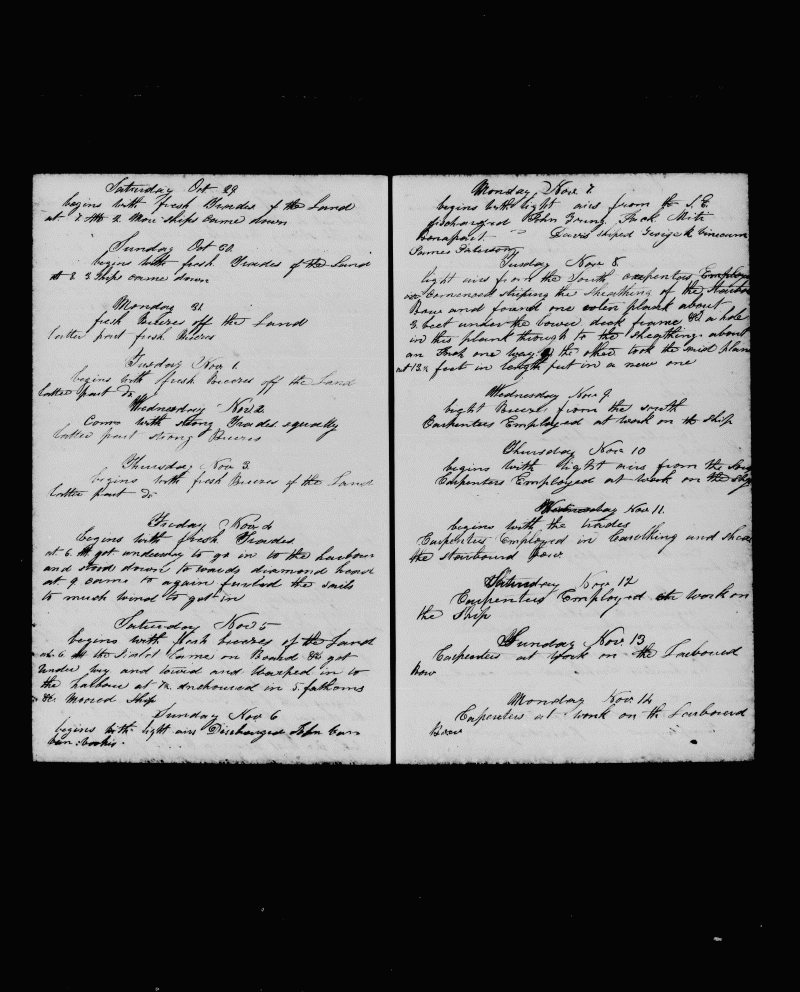 Saturday Oct 29
begins with fresh Trades of the Land
at 7 2 More ships Came down
Sunday Oct 30
begins with fresh Trades of the Land
at 8 3 Ships came down
Monday 31
fresh Breezes off the Land
latter part fresh Breezes
Tuesday Nov 1
begins with fresh Breezes off the Land
latter part do
Wednesday Nov 2
Coms with strong Trades squally
latter part strong Breezes
Thursday Nov 3
begins with fresh Breezes of the Land
latter part do
Friday Nov 4
begins with fresh Trades
at 6 got underway to go in to the harbour
and stood down to wards diamond head
at 9 came to again furled the sails
to much wind to get in
Saturday Nov 5
begins with fresh breezes of the Land
at 6 the Pilot Came on Board & got
under way and towed and warped in to
the harbour at anchoured in 5 fathoms
& Moored Ship
Sunday Nov 6
begins with light airs Discharged John
Monday Nov 7
begins with light airs from the S.E.
discharged John
Bonapart Davis shiped George
James Paterson
Tuesday Nov 8
light airs from the South carpenters Employed
Comenced striping the sheathing of the Starbo
Bow and found one plank about
3 feet under the lower deck frame & a hole
in this plank through to the Sheathing about
an one way the other took the said plank
at 13 feet in length put in a new one
Wednesday Nov 9
light Breezes from the south
Carpenters Employed at work on the ship
Thursday Nov 10
begins with light airs from the
Carpenters Employed at work on the ship
Nov 11
begins with the trades
Carpenters Employed in Caulking and
the starbourd Bow
Saturday Nov 12
Carpenters Employed at work on
the Ship
Sunday Nov 13
Carpenters at work on the Larbourd
Bow
Monday Nov 14
Carpenters at work on the Larbourd
Bow